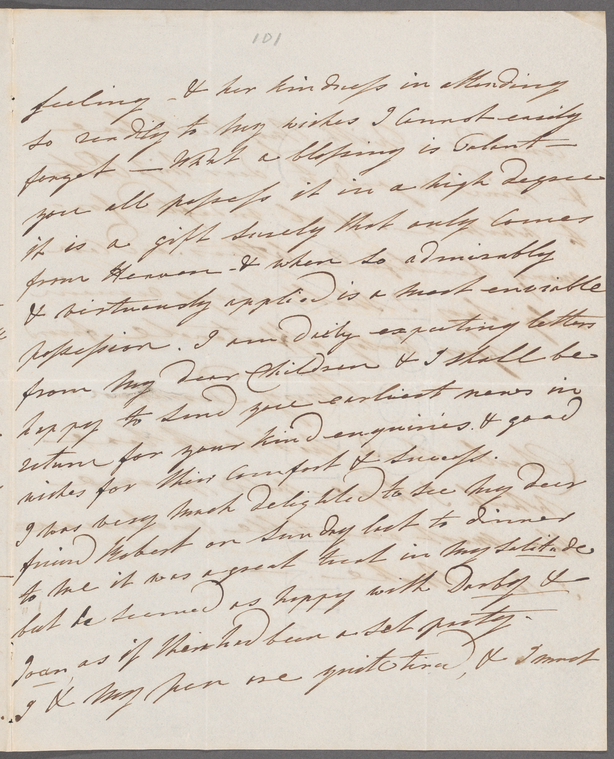 101
feeling - & her kindness in attending
so readily to my wishes I cannot easily
forget - What a blessing is Talent -
you all possess it in a high degree
it is a gift surely that only comes
from Heaven - & when so admirably
& virtuously applied is a most enviable
possession. I am daily expecting letters
from my dear Children & I shall be
happy to send you earliest news in
return for your kind enquiries. & good
wishes for their comfort & success.
I was very much delighted to see my dear
friend Robert on Sunday last to dinner
to me it was a great treat in my solitude
but he seemed as happy with Darby &
Joan, as if there had been a set party.
I & my pen are quite tired, & I must